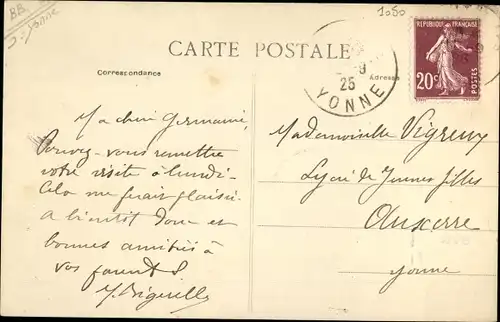 BB
Yonne
1050
CARTE POSTALE
Correspondance
Adresse
9
25
YONNE
REPUBLIQUE FRANÇAISE
20c
POSTES
Ma chère Germaine,
Pouvez-vous remettre
votre visite à lundi-
Cela me ferait plaisir.
à bientôt donc et
bonnes amitiés à
vos parents.
Mademoiselle Vigreux
Lycée de Jeunes filles
Auxerre
Yonne